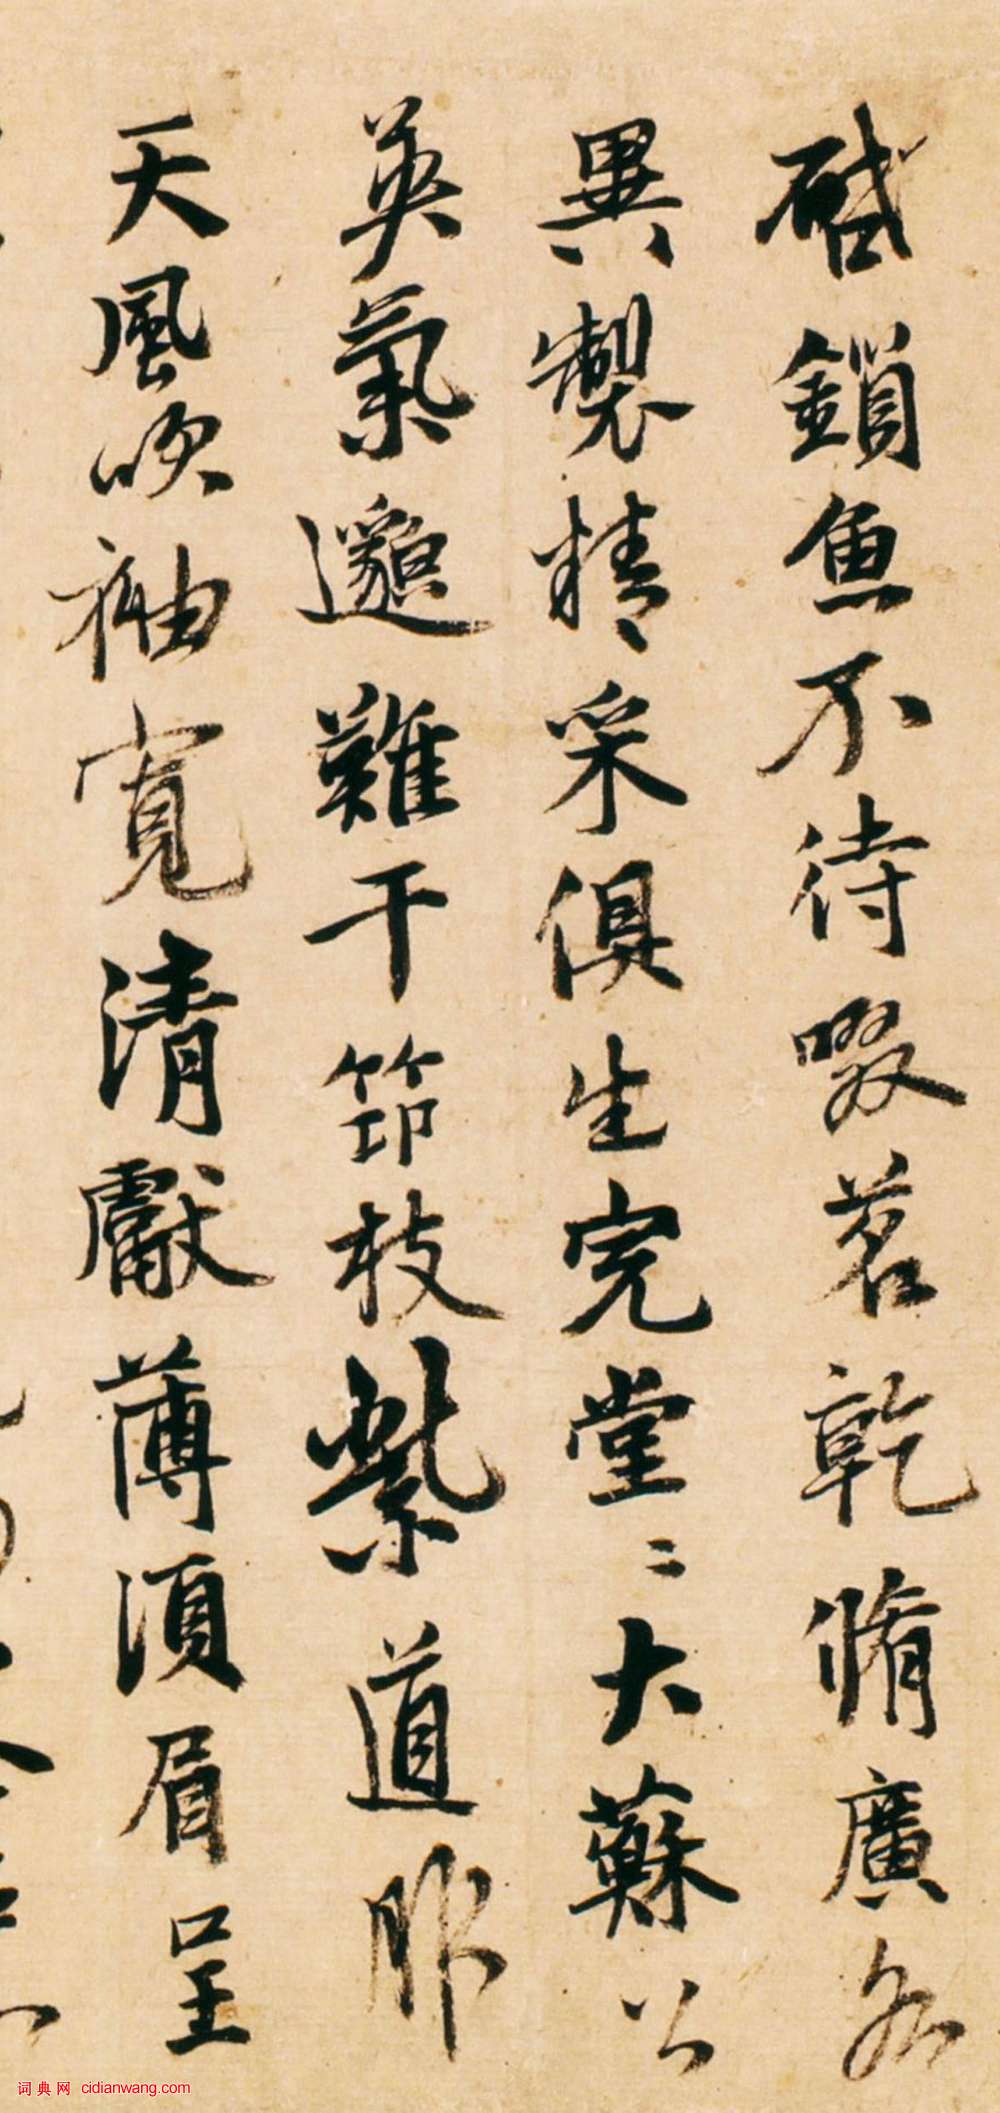 鎖魚不待啜茗乾脩廣各
異製精采俱生完堂二大蘇公
英氣邈難干笻枝紫道服
天風吹袖寬清獻薄須眉呈
词典网 cidianwang.com